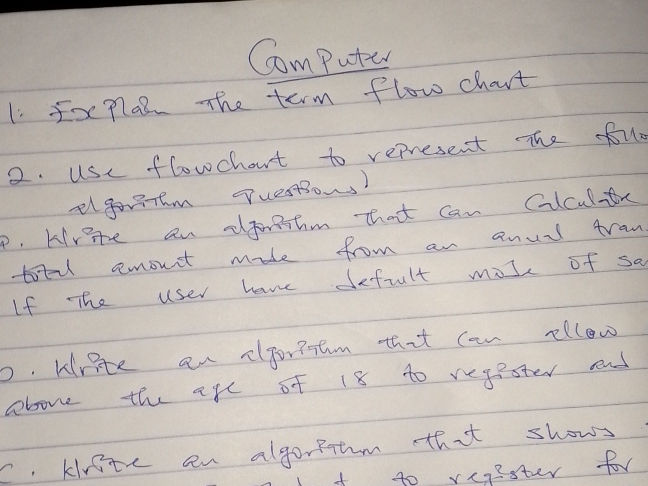 Computer
1. Explain The term flow chart
2. Use flowchart to represent The
algorithm questions!
Write an algorithm that can Calculate
total amount made from an anual
If the user have default mode of
Write an algorithm that can allow
above the age of 18 to register and
C. Write an algorithm that shows
to register for